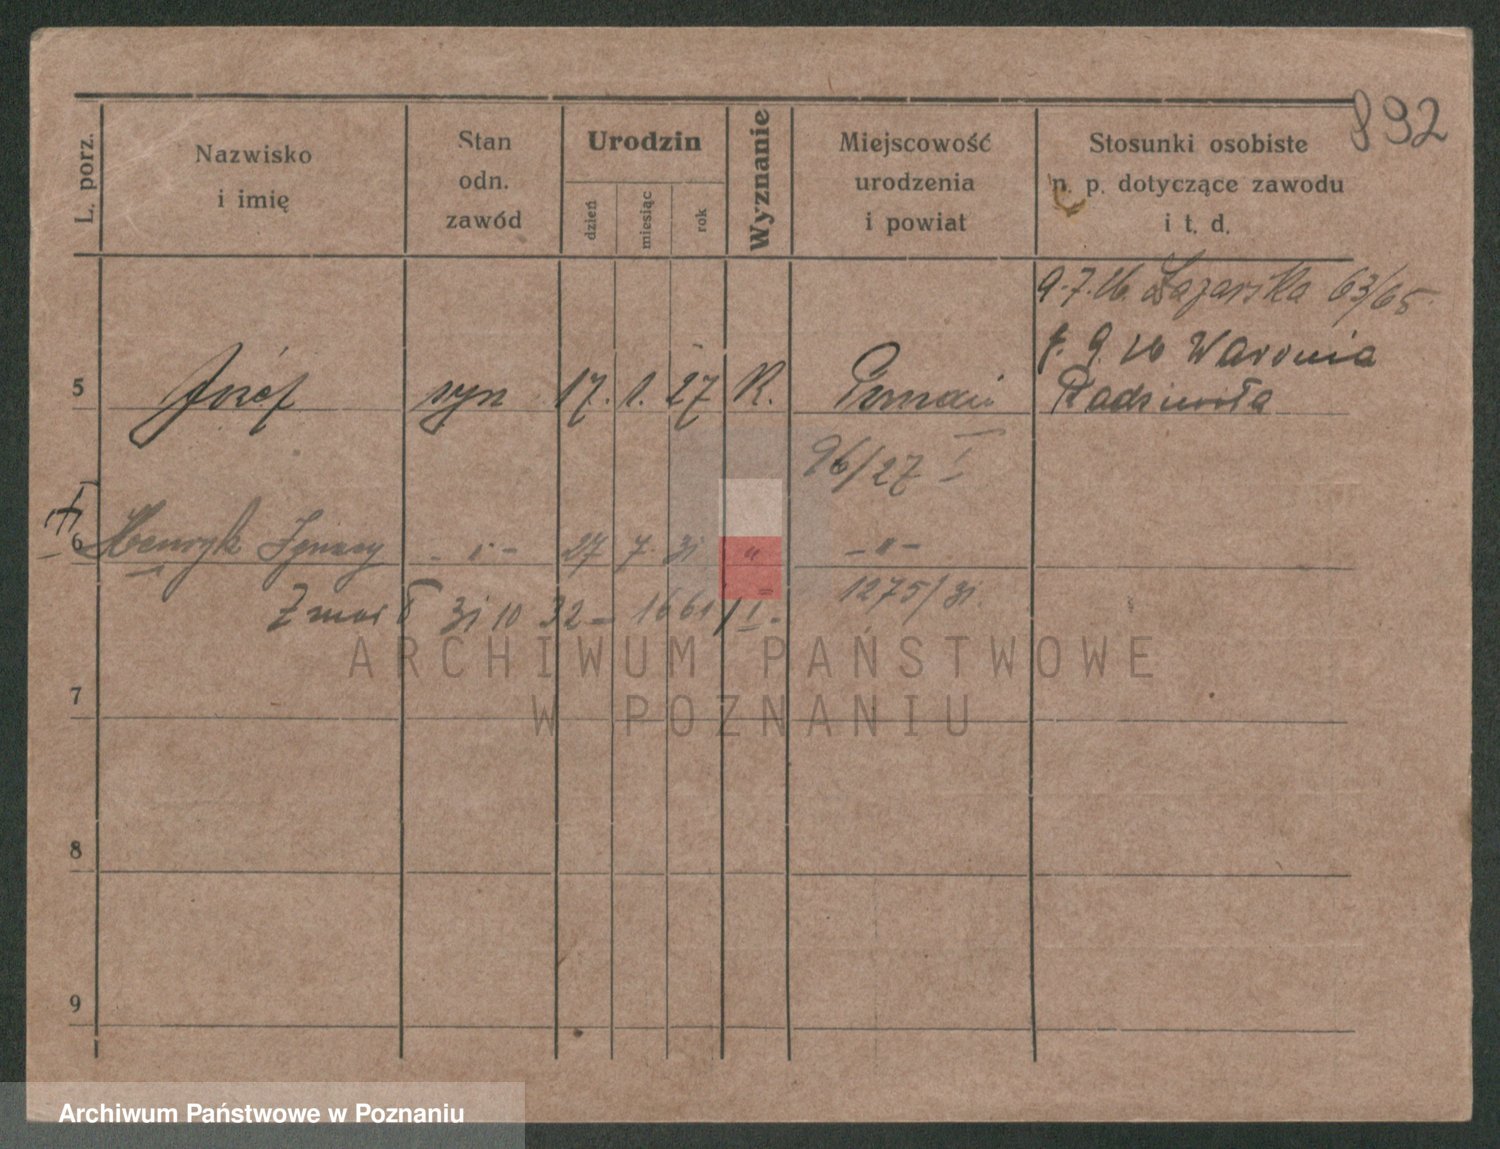 892
L. porz.
Nazwisko
i imię
Stan
odn.
zawód
Urodzin
dzień
miesiąc
rok
Wyznanie
Miejscowość
urodzenia
i powiat
Stosunki osobiste
n. p. dotyczące zawodu
i t. d.
9.7.26. Łazarska 63/65.
9. 26 Waronia
Radziwiła
5 Józef syn 17. 1. 27 R. Poznań
96/27 I
6 Henryk Ignacy - " - 27 7. 31 " - " -
1275/31.
Zmarł 31 10 32 - 1661/II.
7
8
9
ARCHIWUM PAŃSTWOWE
W POZNANIU
Archiwum Państwowe w Poznaniu